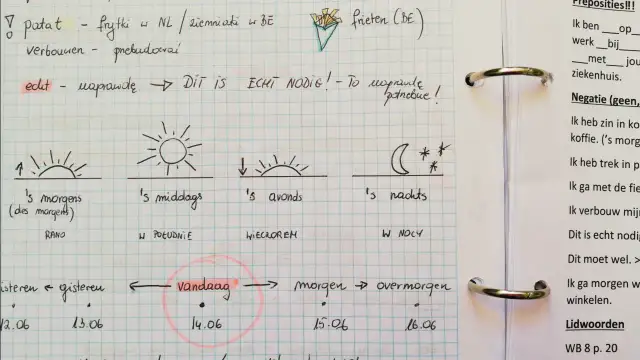 ! patat - frytki w NL / ziemniaki w BE
frieten (BE)
verbouwen - przebudować
echt - naprawdę → DIT IS ECHT NODIG! - To naprawdę potrzebne!
's morgens 's middags 's avonds 's nachts
(des morgens)
RANO W POŁUDNIE WIECZOREM W NOCY
isteren ← gisteren ← vandaag → morgen → overmorgen
12.06 13.06 14.06 15.06 16.06
Preposities!!!
Ik ben __op__
werk __bij__
__met__ jou
ziekenhuis.
Negatie (geen,
Ik heb zin in ko
koffie. ('s morg
Ik heb trek in p
Ik ga met de fie
Ik verbouw mij
Dit is echt nodi
Dit moet wel. >
Ik ga morgen w
winkelen.
Lidwoorden
WB 8 p. 20